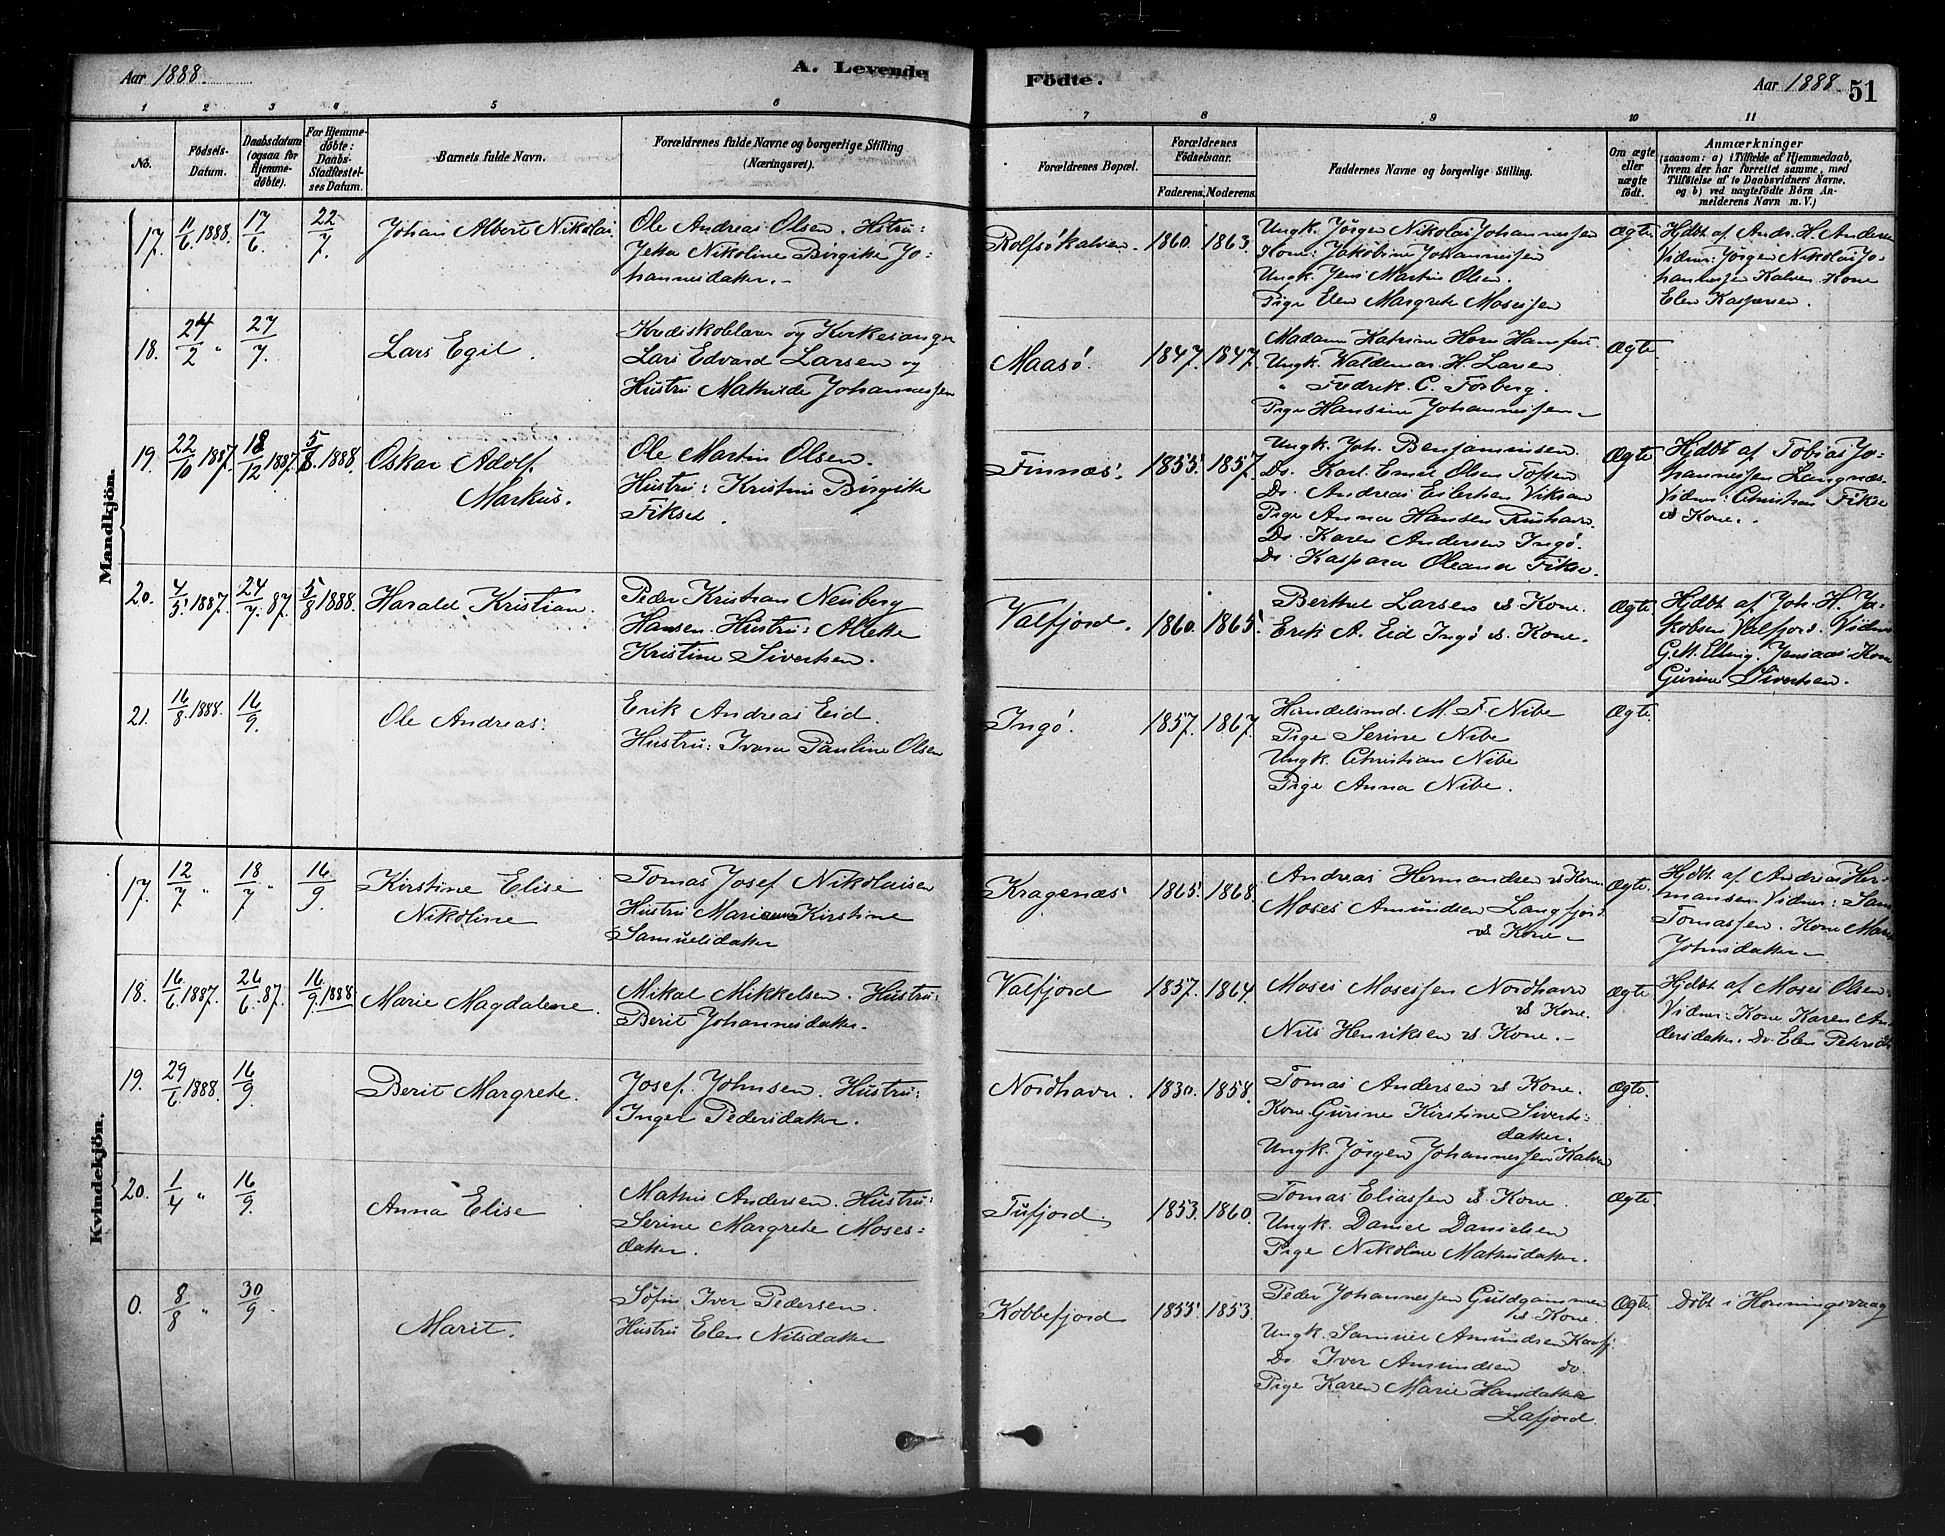 Aar 1888.
A. Levende
Födte.
Aar 1888. 51
1 2 3 4 5 6 7 8 9 10 11
No.
Födsels-Datum.
Daabsdatum (ogsaa for Hjemme-døbte).
For Hjemme-døbte: Daabs-Stadfæstel-ses Datum.
Barnets fulde Navn.
Forældrenes fulde Navne og borgerlige Stilling (Næringsvei).
Forældrenes Bopæl.
Forældrenes Födselsaar.
Faderens. Moderens.
Faddernes Navne og borgerlige Stilling.
Om ægte eller uægte født.
Anmærkninger
(saasom: a) i Tilfælde af Hjemmedaab,
hvem der har forrettet samme, med
Tilføielse af to Daabsvidners Navne,
og b) ved uægtefødte Börn An-
melderens Navn m. V.)
Mandkjön.
17. 11/6 1888. 17/6 22/7. Johan Albert Nikolai
Ole Andreas Olsen. Hstru:
Nikoline Birgitte Jo-
hannesdatter.
Rolfsökalven. 1860. 1863.
Ungk. Jørgen Nikolai Johannessen
Kone: Jakobine Johannessen
Ungk. Jens Martin Olsen.
Pige Elen Margrete Mosessen
Ægte.
Hjdbt af Andr. H. Andersen
Vidner: Jörgen Nikolai Jo-
hannessen Kalven. Kone
Elen Kaspersen.
18. 24/2 " 27/7. Lars Egil.
Kredsskolelærer og Kirkesanger
Lars Edvard Larsen og
Hustru Mathilde Johannessen
Maasö. 1847. 1847.
Madam Katrine Horn Hansen
Ungk. Waldemar H. Larsen
" Fredrik C. Forberg.
Pige Hansine Johannessen
Ægte.
19. 22/10 1887. 18/12 1887. 5/8 1888. Oskar Adolf
Markus.
Ole Martin Olsen.
Hustru: Kristine Birgitte
Fikset.
Finnæs. 1855. 1857.
Ungk. Joh. Benjaminsen
Do. Karl Emil Olsen Toften
Do. Andreas Eilertsen Viksan
Pige Anna Hansen
Do. Karen Andersen Ingö.
Do. Kaspara Oleana Fikse.
Ægte
Hjdbt af Tobias Jo-
hannessen Langnæs.
Vidner: Christian Fikse
& Kone.
20. 4/5 1887. 24/7 87. 5/8 1888. Harald Kristian.
Peder Kristian Neuberg
Hansen. Hustru: Allette
Kristine Sivertsen.
Valfjord. 1860. 1865.
Berthel Larsen & Kone.
Erik A. Eid Ingö & Kone.
Ægte
Hjdbt af Joh. H. Ja-
kobsen Valfjord. Vidner
G. M. Kone
Gurine Sivertsen.
21. 16/8 1888. 16/9. Ole Andreas.
Erik Andreas Eid.
Hustru: Ivara Pauline Olsen
Ingö. 1857. 1867.
Handelsmd. M. F. Nibe
Pige Serine Nibe
Ungk. Christian Nibe
Pige Anna Nibe.
Ægte.
Kvindekjön.
17. 12/7 " 18/7 " 16/9. Kirstine Elise
Nikoline
Tomas Josef Nikolaisen
Hustru Marianna Kirstine
Samuelsdatter
Kragenæs 1865. 1868.
Andreas Hermandsen & Kone
Moses Amundsen Langfjord
& Kone
Ægte.
Hjdbt af Andreas Her-
mansen. Vidner: Sam.
Tomassen. Kone Marit
Johnsdatter
18. 16/6 1887. 26/6 87. 16/9 1888. Marie Magdalene.
Mikal Mikkelsen. Hustru:
Berit Johannesdatter.
Valfjord 1857. 1864.
Moses Mosessen Nordhavn
& Kone.
Nils Henriksen & Kone.
Ægte
Hjdbt af Moses Olsen
Vidner: Kone Karen An-
dersdatter. Do. Elen Petersdt
19. 29/6 1888. 16/9. Berit Margrete.
Josef Johnsen. Hustru:
Inger Pedersdatter.
Nordhavn. 1830. 1858.
Tomas Andersen & Kone.
Kone Gurine Kirstine Siverts-
datter.
Ungk. Jörgen Johannessen Kalven
Ægte.
20. 1/4 " 16/9. Anna Elise
Mathis Andersen. Hustru:
Serine Margrete Moses-
datter.
Tufjord. 1853. 1860.
Tomas Eliassen & Kone.
Ungk. Daniel Danielsen
Pige Nikoline Mathisdatter.
Ægte.
0. 8/8 " 30/9. Marit.
Söfin Iver Pedersen.
Hustru Elen Nilsdatter
Kobbefjord 1855. 1853.
Peder Johannessen Guldgammen
& Kone.
Ungk. Samuel Amundsen
Do. Iver Amundsen do
Pige Karen Marie Hansdatter
Lafjord.
Ægte.
Döbt i Honningsvaag